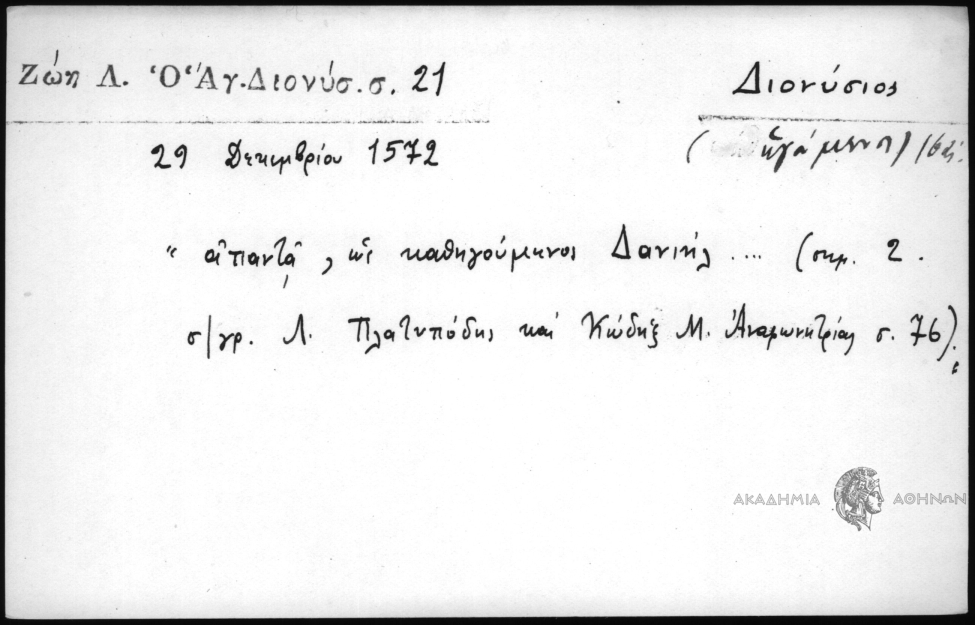 Ζώη Λ. Ὁ Ἅγ. Διονύσ. σ. 21
Διονύσιος
29 Δεκεμβρίου 1572
" ἀπαντᾷ, ὡς καθηγούμενος Δανιήλ .... (σημ. 2.
σ/γρ. Λ. Πλατυπόδης καὶ Κώδηξ Μ. Ἀναφωνητρίας σ. 76).
ΑΚΑΔΗΜΙΑ ΑΘΗΝΩΝ